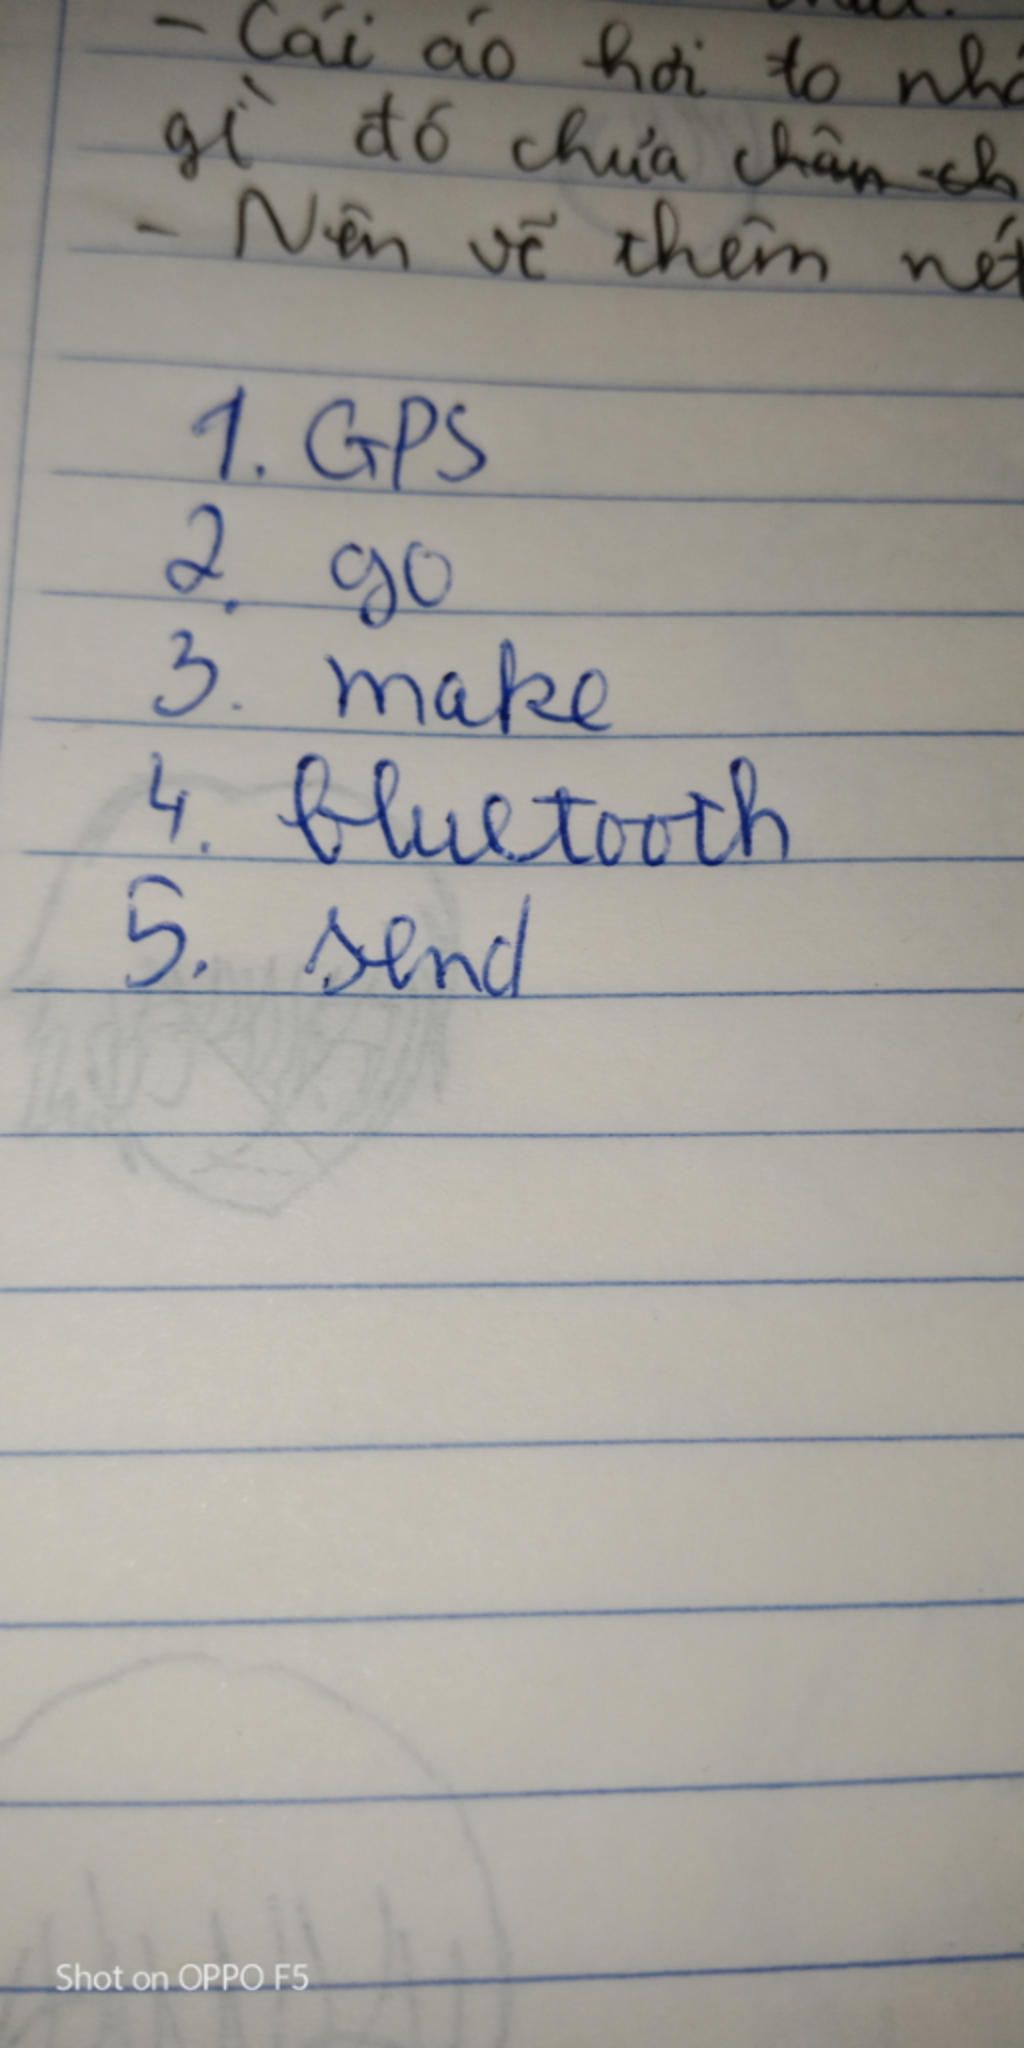 - Cái áo hơi to
gì đó chưa
- Nên vẽ thêm nét
1. GPS
2. go
3. make
4. bluetooth
5. send
Shot on OPPO F5